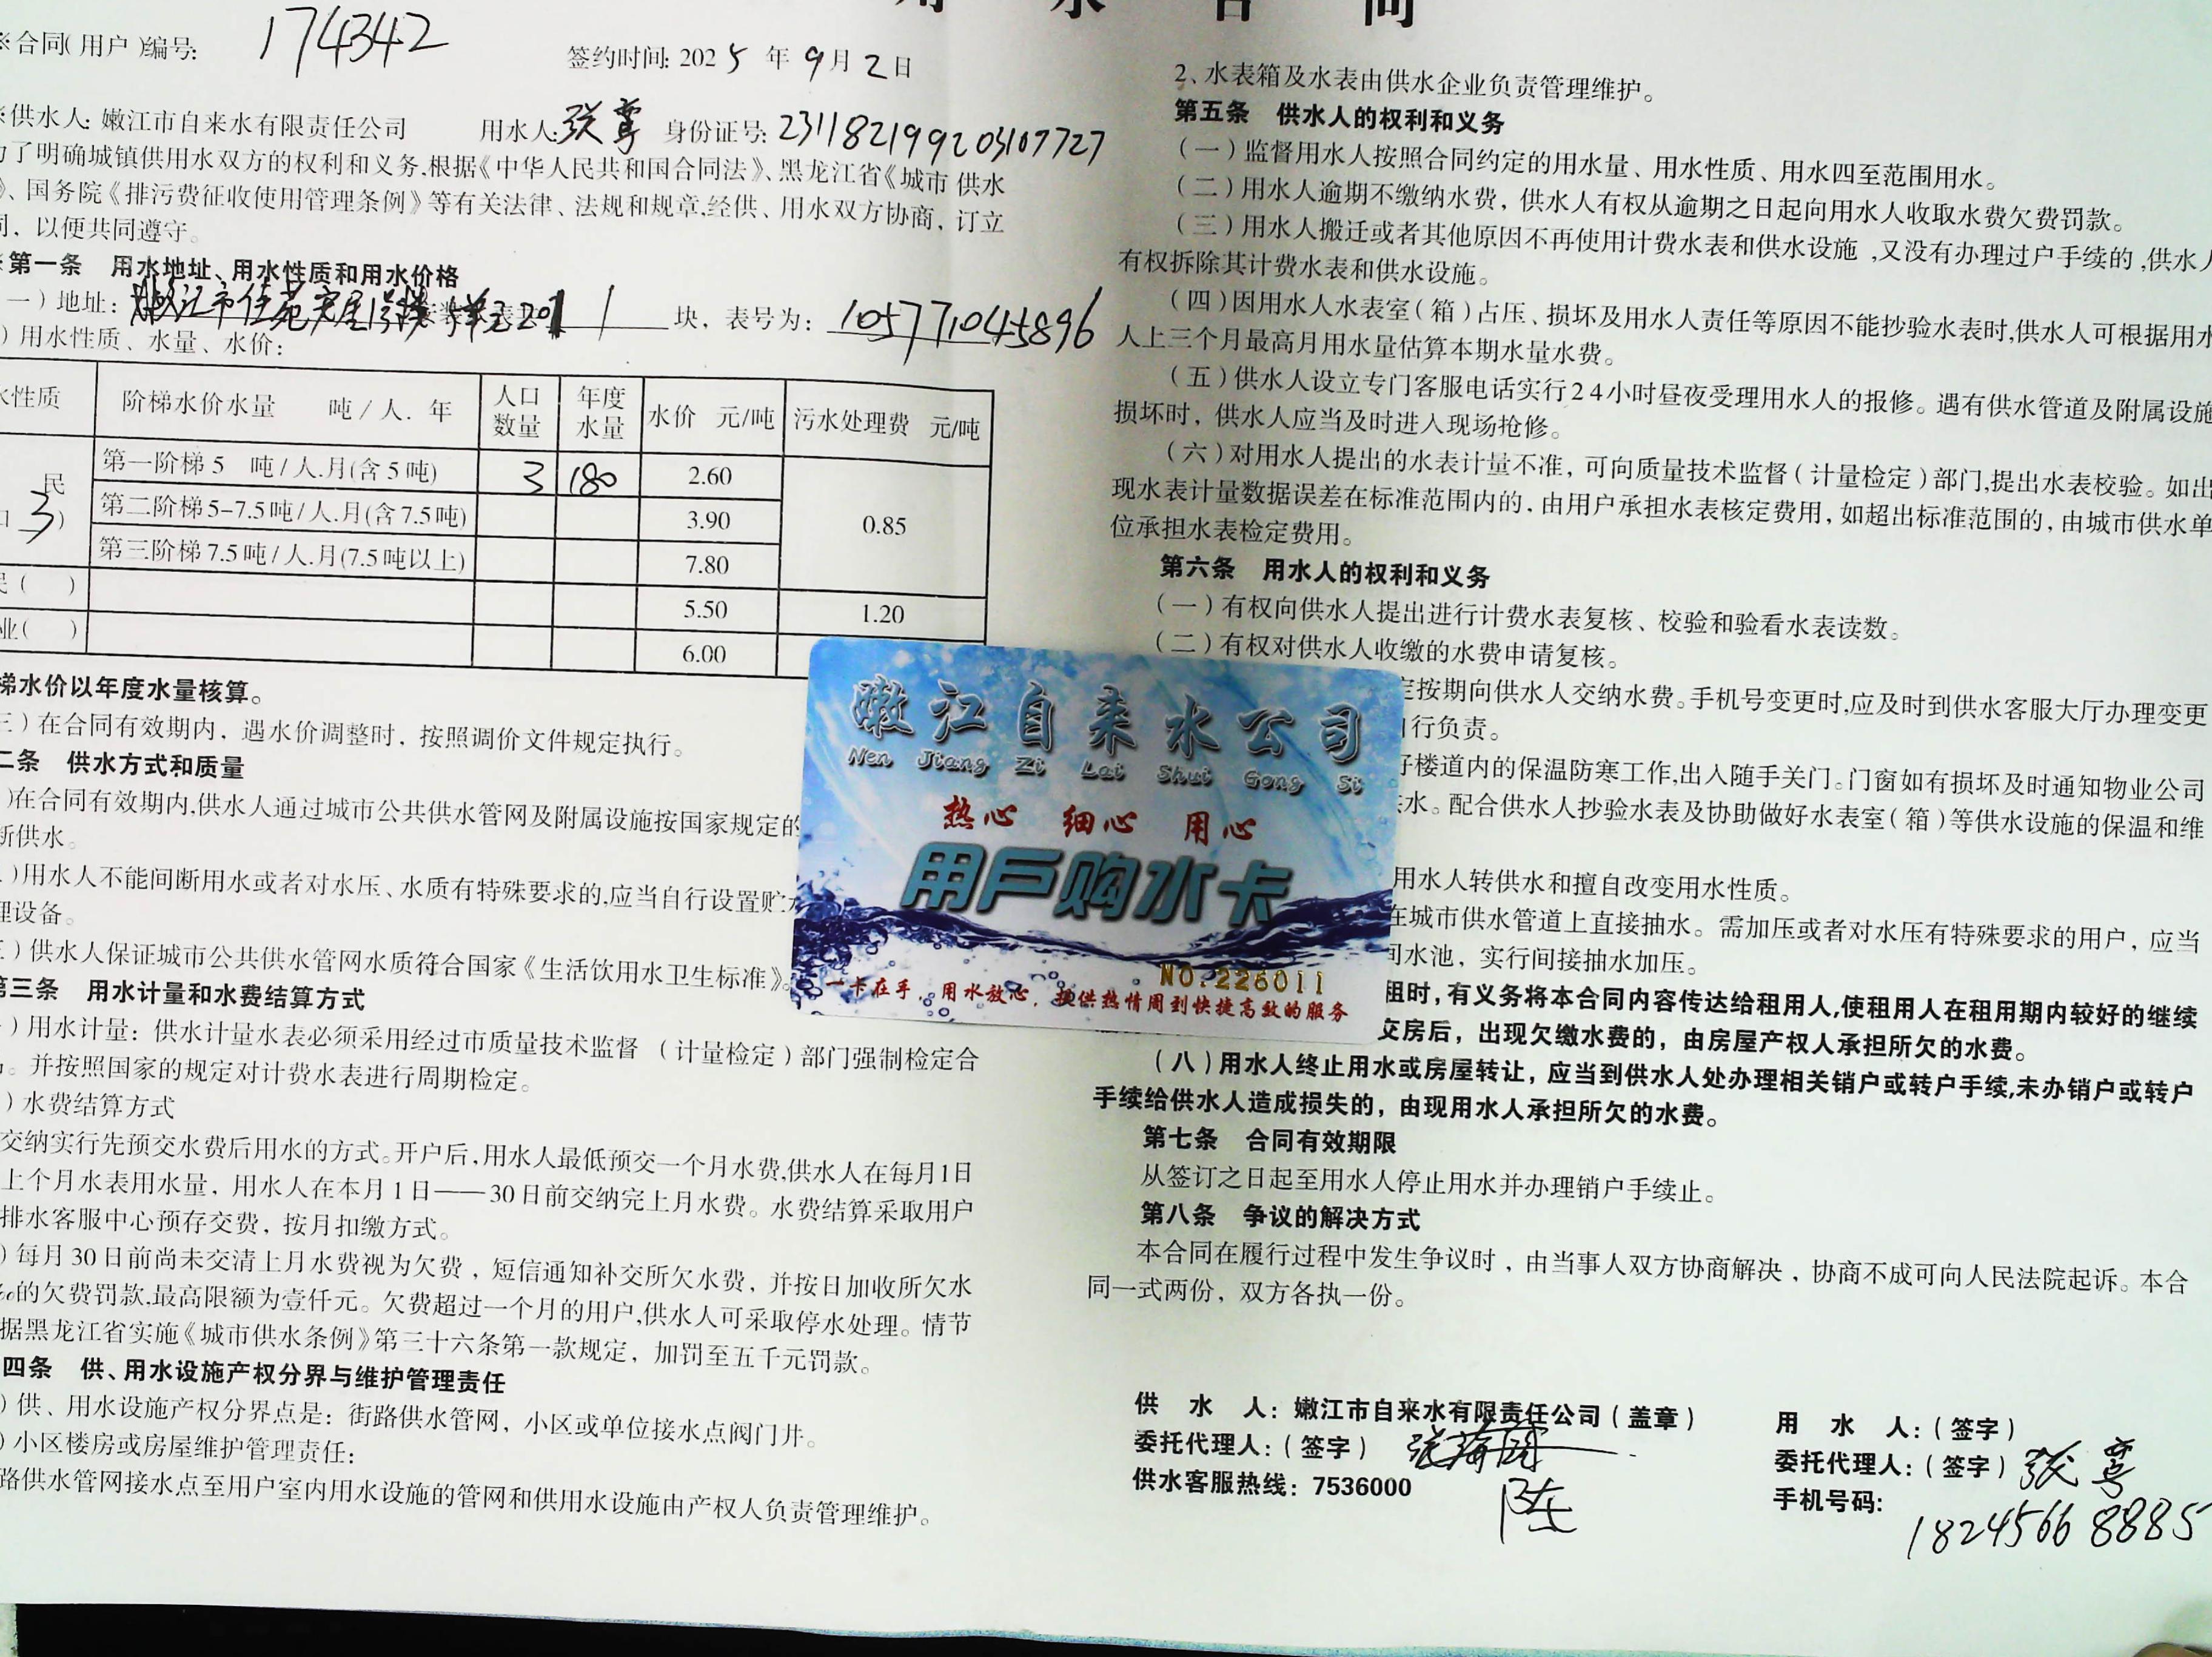 用 水 合 同
※合同(用户)编号: 174342
签约时间: 2025 年 9月 2日
※供水人: 嫩江市自来水有限责任公司 用水人: 张鸾 身份证号: 231182199203107727
为了明确城镇供用水双方的权利和义务,根据《中华人民共和国合同法》、黑龙江省《城市 供水
》、国务院《排污费征收使用管理条例》等有关法律、法规和规章,经供、用水双方协商, 订立
同, 以便共同遵守。
※第一条 用水地址、用水性质和用水价格
一)地址: 嫩江市佳苑 201 1 块, 表号为: 105771045896
)用水性质、水量、水价:
水性质 阶梯水价水量 吨/人. 年 人口数量 年度水量 水价 元/吨 污水处理费 元/吨
民
口 3 )
第一阶梯 5 吨/人.月(含5吨) 3 180 2.60 0.85
第二阶梯5-7.5吨/人.月(含7.5吨) 3.90
第三阶梯7.5吨/人.月(7.5吨以上) 7.80
民( ) 5.50 1.20
业( ) 6.00
梯水价以年度水量核算。
三)在合同有效期内, 遇水价调整时, 按照调价文件规定执行。
二条 供水方式和质量
)在合同有效期内,供水人通过城市公共供水管网及附属设施按国家规定的
断供水。
)用水人不能间断用水或者对水压、水质有特殊要求的,应当自行设置贮
理设备。
三)供水人保证城市公共供水管网水质符合国家《生活饮用水卫生标准》。
第三条 用水计量和水费结算方式
)用水计量: 供水计量水表必须采用经过市质量技术监督 (计量检定)部门强制检定合
。并按照国家的规定对计费水表进行周期检定。
)水费结算方式
交纳实行先预交水费后用水的方式。开户后,用水人最低预交一个月水费,供水人在每月1日
上个月水表用水量, 用水人在本月1日——30日前交纳完上月水费。水费结算采取用户
排水客服中心预存交费, 按月扣缴方式。
)每月30日前尚未交清上月水费视为欠费, 短信通知补交所欠水费, 并按日加收所欠水
‰的欠费罚款,最高限额为壹仟元。欠费超过一个月的用户,供水人可采取停水处理。情节
据黑龙江省实施《城市供水条例》第三十六条第一款规定, 加罚至五千元罚款。
四条 供、用水设施产权分界与维护管理责任
)供、用水设施产权分界点是: 街路供水管网, 小区或单位接水点阀门井。
)小区楼房或房屋维护管理责任:
路供水管网接水点至用户室内用水设施的管网和供用水设施由产权人负责管理维护。
2、水表箱及水表由供水企业负责管理维护。
第五条 供水人的权利和义务
(一)监督用水人按照合同约定的用水量、用水性质、用水四至范围用水。
(二)用水人逾期不缴纳水费, 供水人有权从逾期之日起向用水人收取水费欠费罚款。
(三)用水人搬迁或者其他原因不再使用计费水表和供水设施,又没有办理过户手续的,供水人
有权拆除其计费水表和供水设施。
(四)因用水人水表室(箱)占压、损坏及用水人责任等原因不能抄验水表时,供水人可根据用水
人上三个月最高月用水量估算本期水量水费。
(五)供水人设立专门客服电话实行24小时昼夜受理用水人的报修。遇有供水管道及附属设施
损坏时, 供水人应当及时进入现场抢修。
(六)对用水人提出的水表计量不准, 可向质量技术监督(计量检定)部门,提出水表校验。如出
现水表计量数据误差在标准范围内的, 由用户承担水表核定费用, 如超出标准范围的, 由城市供水单
位承担水表检定费用。
第六条 用水人的权利和义务
(一)有权向供水人提出进行计费水表复核、校验和验看水表读数。
(二)有权对供水人收缴的水费申请复核。
定按期向供水人交纳水费。手机号变更时,应及时到供水客服大厅办理变更
自行负责。
好楼道内的保温防寒工作,出入随手关门。门窗如有损坏及时通知物业公司
水。配合供水人抄验水表及协助做好水表室(箱)等供水设施的保温和维
用水人转供水和擅自改变用水性质。
在城市供水管道上直接抽水。需加压或者对水压有特殊要求的用户, 应当
间水池, 实行间接抽水加压。
租时, 有义务将本合同内容传达给租用人,使租用人在租用期内较好的继续
交房后, 出现欠缴水费的, 由房屋产权人承担所欠的水费。
(八)用水人终止用水或房屋转让, 应当到供水人处办理相关销户或转户手续,未办销户或转户
手续给供水人造成损失的, 由现用水人承担所欠的水费。
第七条 合同有效期限
从签订之日起至用水人停止用水并办理销户手续止。
第八条 争议的解决方式
本合同在履行过程中发生争议时, 由当事人双方协商解决, 协商不成可向人民法院起诉。本合
同一式两份, 双方各执一份。
供 水 人: 嫩江市自来水有限责任公司(盖章)
委托代理人: (签字)
供水客服热线: 7536000
陈
用 水 人: (签字)
委托代理人: (签字) 张鸾
手机号码:
18245668885
嫩江自来水公司
Nen Jiang Zi Lai Shui Gong Si
热心 细心 用心
用户购水卡
NO.226011
一卡在手, 用水放心, 提供热情周到快捷高效的服务